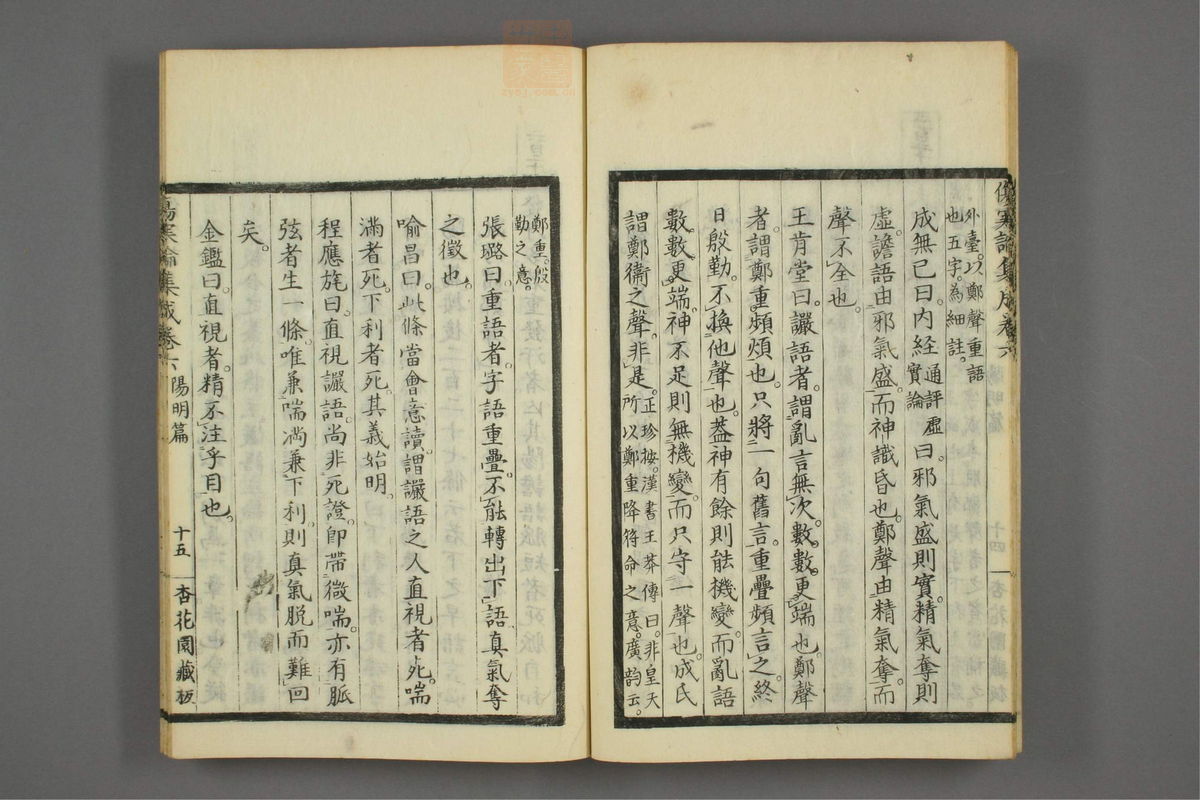 傷寒論集成卷六
外臺。以鄭聲重語
也五字。為細註。
成無己曰。内經通評虛實論曰。邪氣盛則實。精氣奪則
虛。譫語由邪氣盛。而神識昏也。鄭聲由精氣奪。而
聲不全也。
王肯堂曰。讝語者。謂亂言無次。數數更端也。鄭聲
者。謂鄭重頻煩也。只將一句舊言。重疊頻言之。終
日殷勤。不換他聲也。蓋神有餘則能機變。而亂語
數數更端。神不足則無機變。而只守一聲也。成氏
謂鄭衞之聲。非是。正珍按。漢書王莽傳曰。非皇天
所以鄭重降符命之意。廣韵云。
鄭重。殷
勤之意。
張璐曰。重語者。字語重疊。不能轉出下語。真氣奪
之徵也。
喻昌曰。此條當會意讀。謂讝語之人直視者死。喘
滿者死。下利者死。其義始明。
程應旄曰。直視讝語。尚非死證。即帶微喘。亦有脈
弦者生一條。唯兼喘滿兼下利。則真氣脫而難回
矣。
金鑑曰。直視者。精不注乎目也。
傷寒論集成卷六 陽明篇 十五 杏花園藏板